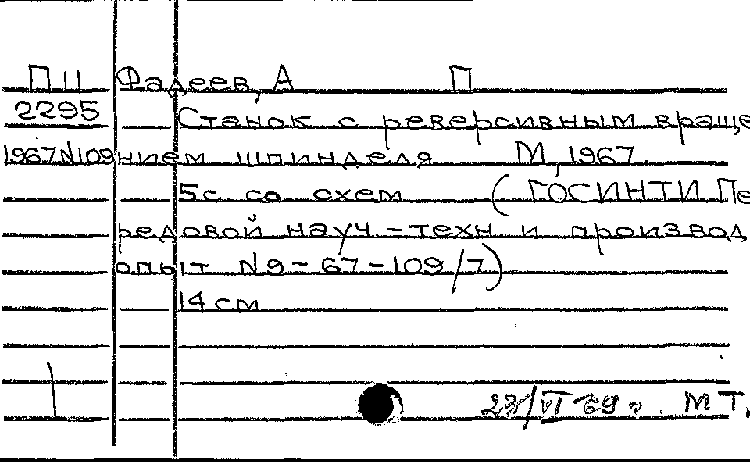 П II Фадеев, А П
2295 Станок с реверсивным враще
1967 N109 нием шпинделя М, 1967
5с со схем (ГОСИНТИ Пе
редовой науч-техн и производ
опыт N9-67-109/7)
14 см
23/VI 69 г. М Т.